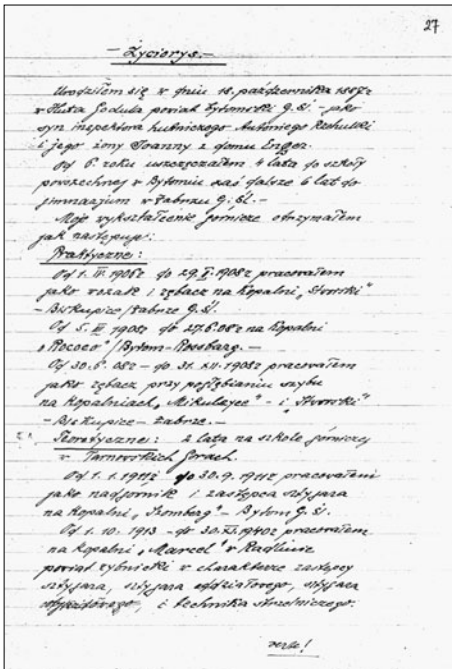 27
- Życiorys. -
Urodziłem się w dniu 18. października 188
w Huta Godula powiat Bytomski G. Śl. - jako
syn inspektora hutniczego Antoniego
i jego żony Joanny z domu Enger.
Od 6. roku uczęszczałem 4 lata do szkoły
powszechnej w Bytomiu zaś dalsze 6 lat do
gimnazjum w Zabrzu G. Śl. -
Moje wykształcenie górnicze otrzymałem
jak następuje:
Praktyczne:
Od 1. IV. 1906r do 29. I. 1908r pracowałem
jako wozak i rębacz na kopalni
- Biskupice / Zabrze G. Śl.
Od 5. 1908r do 27.6.08r na kopalni
"Rococo" / Bytom - Rossbarg. -
Od 30.6.08r - do 31. XII. 1908r pracowałem
jako rębacz przy pogłębianiu szybu
na kopalniach "Mikulczyce" - i
- Biskupice - Zabrze. -
Teoretyczne: 2 lata na szkole górniczej
w Tarnowskich Górach.
Od 1. 1. 1911r do 30. 9. 191 pracowałem
jako nadgórnik i zastępca sztygara
na kopalni - Bytom G. Śl.
Od 1. 10. 1913 - do 30. XI. 1940r pracowałem
na kopalni "Marcel" w Radlinie
powiat rybnicki w charakterze zastępcy
sztygara, sztygara oddziałowego, sztygara
i technika strzelniczego.
verte!